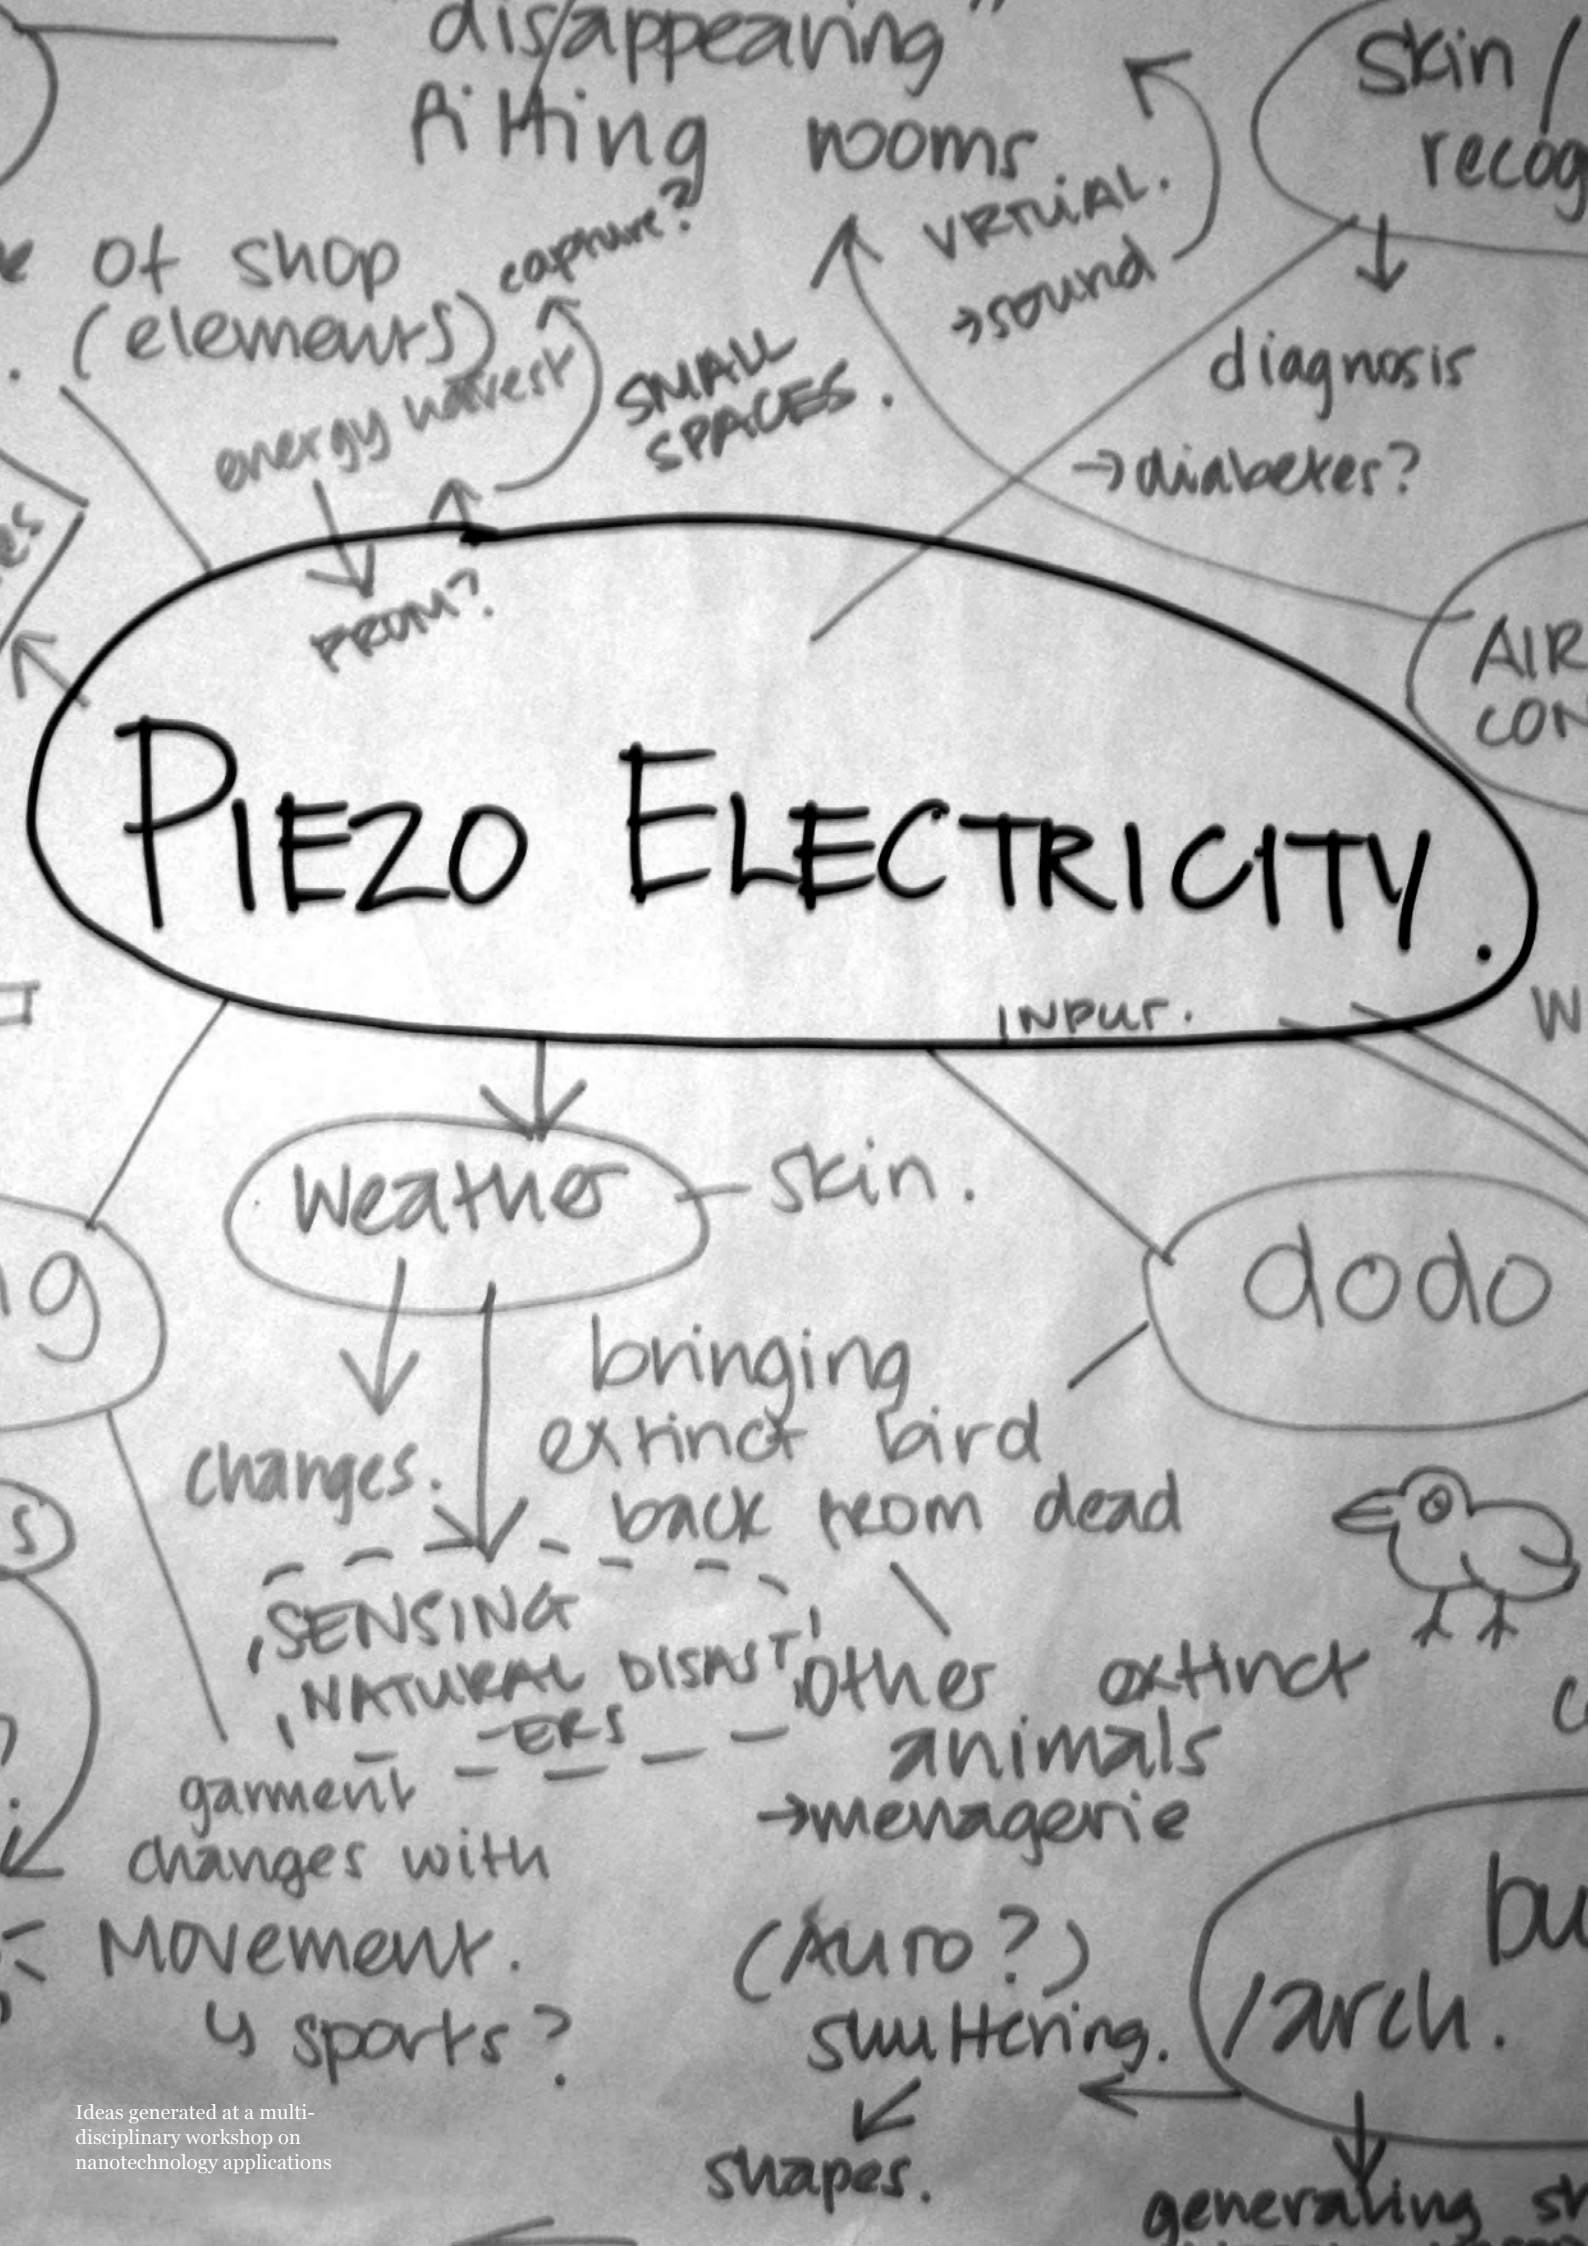 dis/appearing"
fitting rooms
skin /
recog
VRTUAL.
→sound
of shop
(elements)
capture?
energy harvest
SMALL
SPACES.
diagnosis
→diabetes?
FROM?
AIR
CON
PIEZO ELECTRICITY.
INPUT.
W
weather
skin.
dodo
changes.
bringing
extinct bird
back from dead
SENSING
NATURAL DISAST
-ERS
other extinct
animals
→menagerie
garment
changes with
Movement.
↳ sports?
(Auto?)
shuttering.
bu
/arch.
shapes.
generating sh
Ideas generated at a multi-
disciplinary workshop on
nanotechnology applications